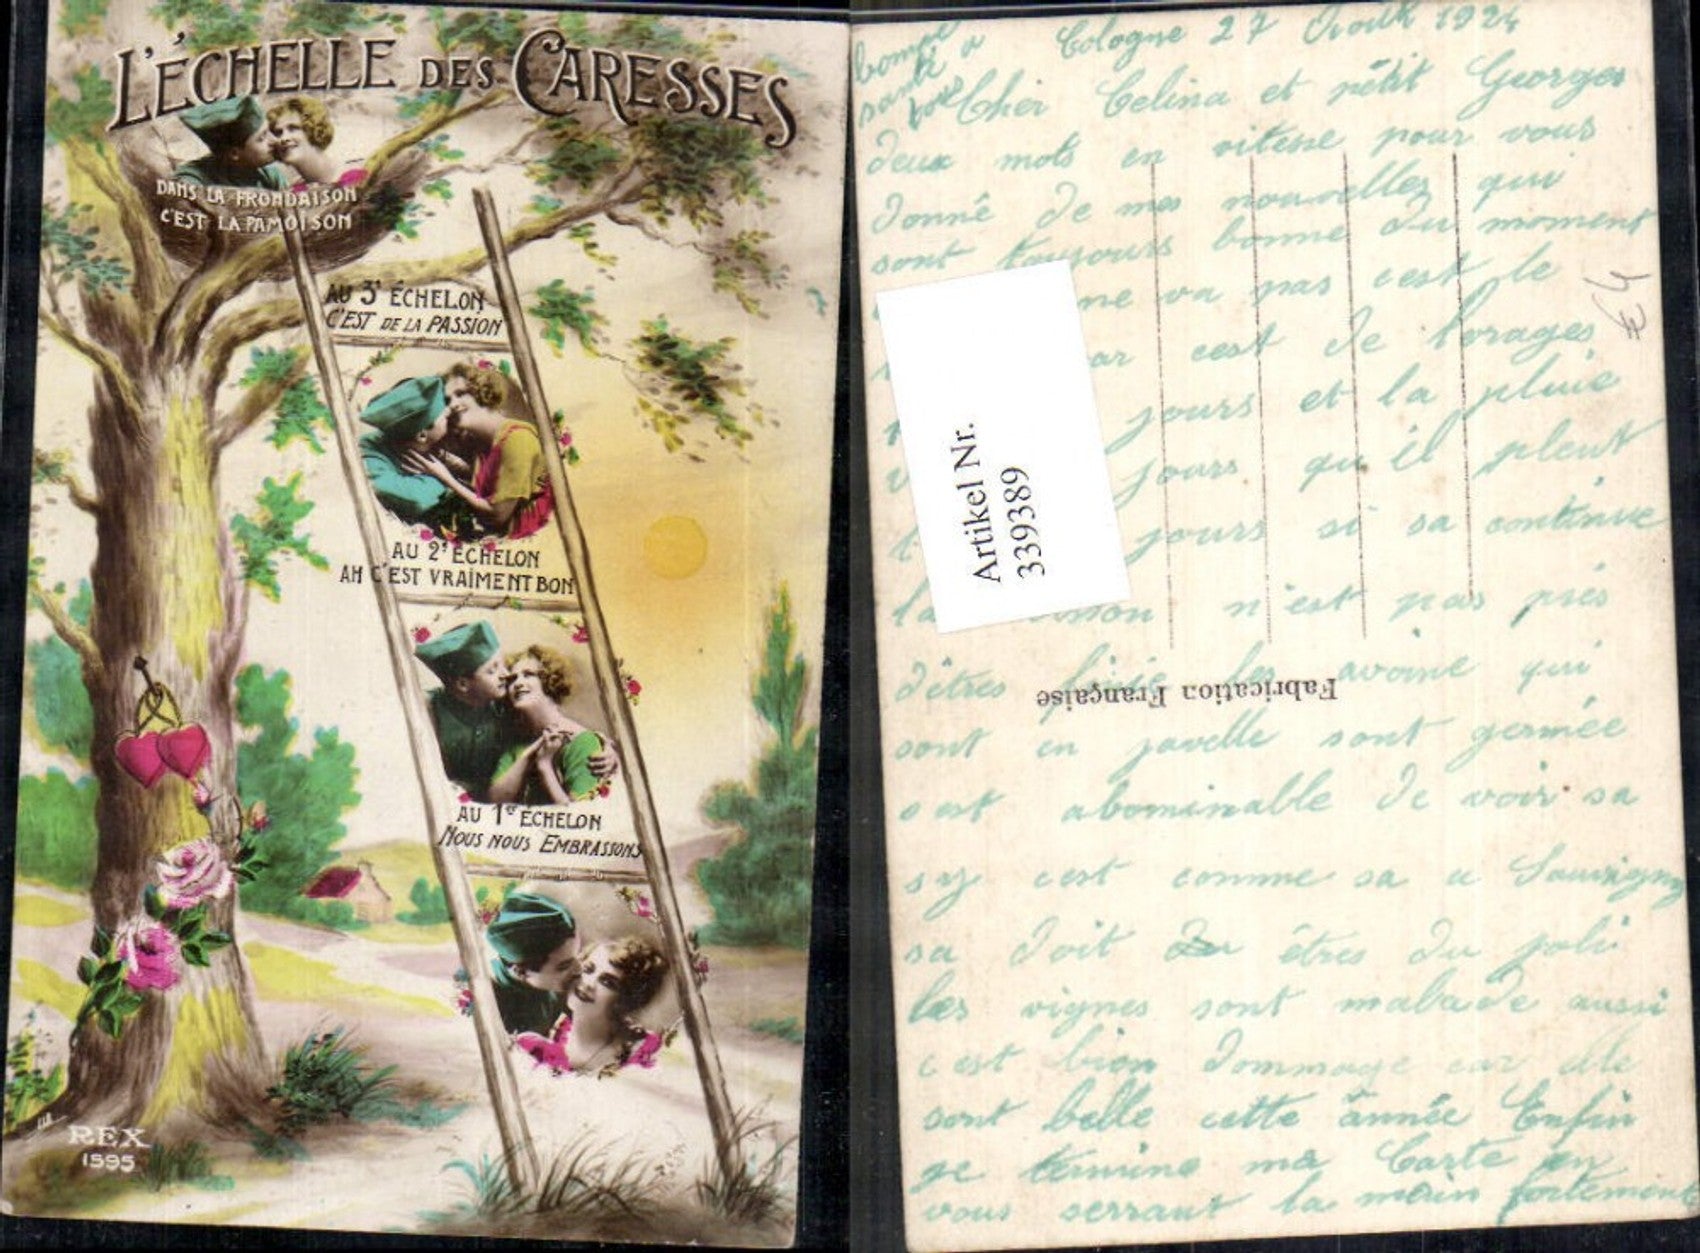 L'ÉCHELLE DES CARESSES
DANS LA FRONDAISON
C'EST LA PAMOISON
AU 3e ÉCHELON
C'EST DE LA PASSION
AU 2e ÉCHELON
AH C'EST VRAIMENT BON
AU 1er ÉCHELON
NOUS NOUS EMBRASSONS
REX
1595
bonne
santé a
Cologne 27 Août 1924
Cher Celina et pétit Georges
deux mots en vitesse pour vous
donné de mes nouvelles qui
sont toujours bonne du moment
ne va pas c'est le
car c'est de l'orages
jours et la pluie
jours qu'il pleut
jours si sa continue
la n'est pas près
d'êtres les avoine qui
sont en javelle sont germée
s'est abominable de voir sa
sy c'est comme sa a Sauvigny
sa doit êtres du joli
les vignes sont malade aussi
c'est bien dommage car elle
sont belle cette année Enfin
je termine ma Carte en
vous serrant la main fortement
Artikel Nr.
339389
Fabrication Française
€4